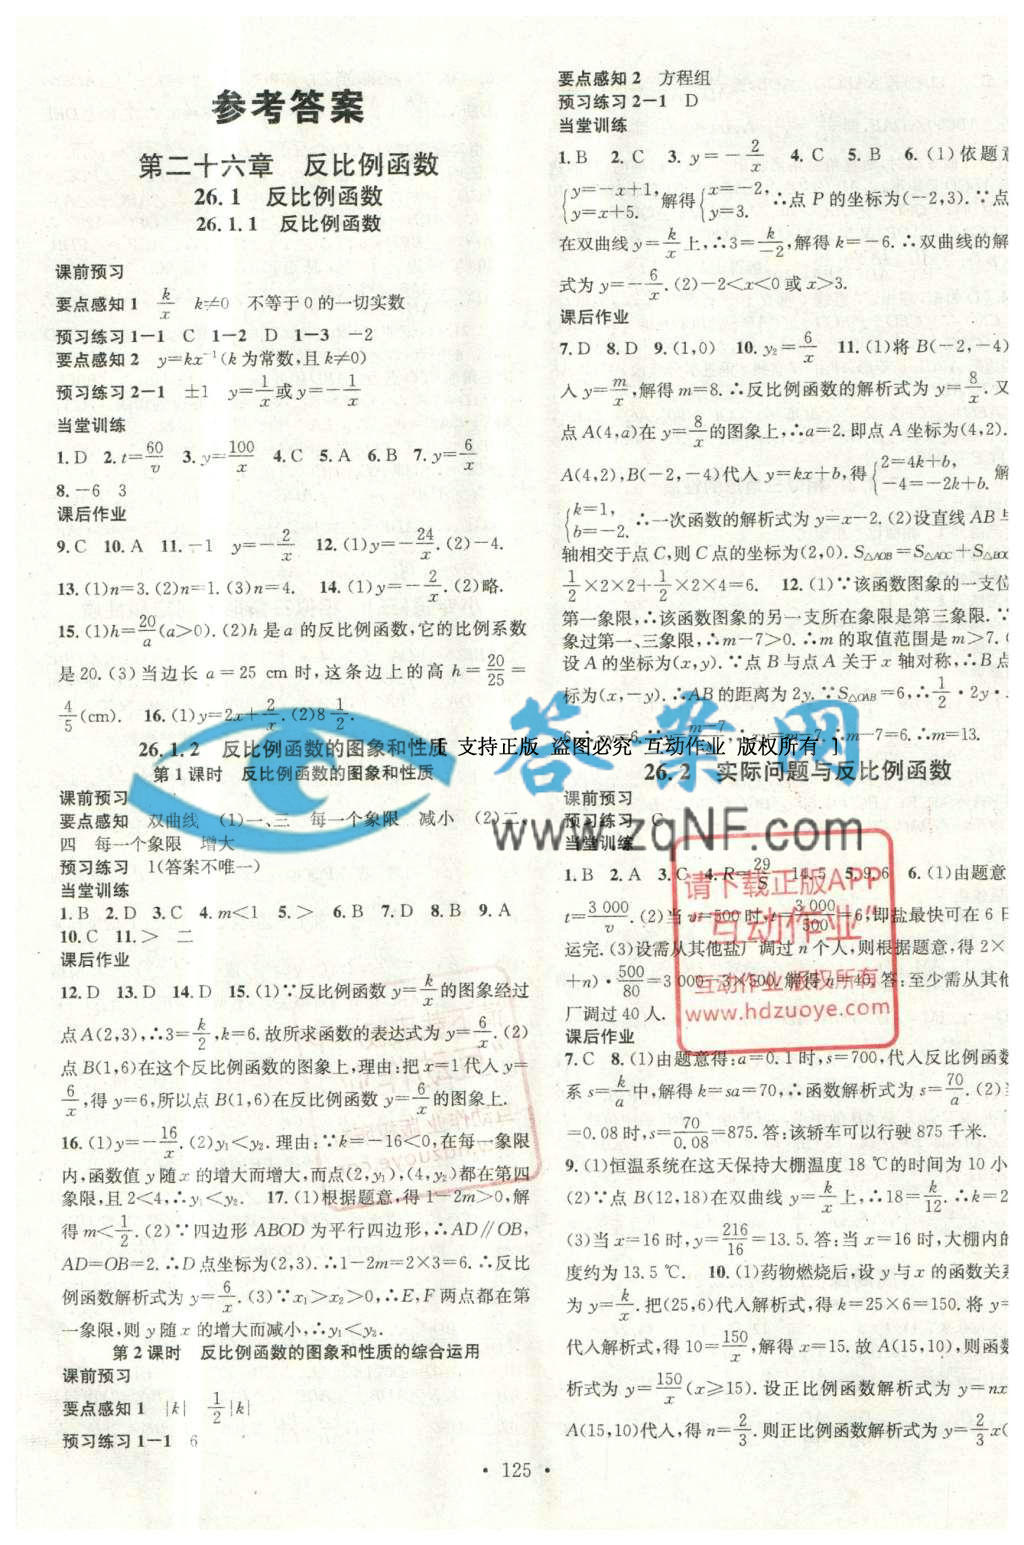 参考答案
第二十六章 反比例函数
26.1 反比例函数
26.1.1 反比例函数
课前预习
要点感知1 k/x k≠0 不等于0的一切实数
预习练习1-1 C 1-2 D 1-3 -2
要点感知2 y=kx⁻¹(k为常数,且k≠0)
预习练习2-1 ±1 y=1/x或y=-1/x
当堂训练
1.D 2.t=60/v 3.y=100/x 4.C 5.A 6.B 7.y=6/x
8.-6 3
课后作业
9.C 10.A 11.-1 y=-2/x 12.(1)y=-24/x.(2)-4.
13.(1)n=3.(2)n=-1.(3)n=4. 14.(1)y=-2/x.(2)略.
15.(1)h=20/a(a>0).(2)h是a的反比例函数,它的比例系数
是20.(3)当边长a=25 cm时,这条边上的高h=20/25=
4/5(cm). 16.(1)y=2x+2/x.(2)8 1/2.
26.1.2 反比例函数的图象和性质
第1课时 反比例函数的图象和性质
课前预习
要点感知 双曲线 (1)一、三 每一个象限 减小 (2)二、
四 每一个象限 增大
预习练习 1(答案不唯一)
当堂训练
1.B 2.D 3.C 4.m<1 5.> 6.B 7.D 8.B 9.A
10.C 11.> 二
课后作业
12.D 13.D 14.D 15.(1)∵反比例函数y=k/x的图象经过
点A(2,3),∴3=k/2,k=6.故所求函数的表达式为y=6/x.(2)
点B(1,6)在这个反比例函数的图象上,理由:把x=1代入y=
6/x,得y=6,所以点B(1,6)在反比例函数y=6/x的图象上.
16.(1)y=-16/x.(2)y₁<y₂.理由:∵k=-16<0,在每一象限
内,函数值y随x的增大而增大,而点(2,y₁),(4,y₂)都在第四
象限,且2<4,∴y₁<y₂. 17.(1)根据题意,得1-2m>0,解
得m<1/2.(2)∵四边形ABOD为平行四边形,∴AD∥OB,
AD=OB=2.∴D点坐标为(2,3).∴1-2m=2×3=6.∴反比
例函数解析式为y=6/x.(3)∵x₁>x₂>0,∴E,F两点都在第
一象限,则y随x的增大而减小,∴y₁<y₂.
第2课时 反比例函数的图象和性质的综合运用
课前预习
要点感知1 |k| 1/2|k|
预习练习1-1 6
要点感知2 方程组
预习练习2-1 D
当堂训练
1.B 2.C 3.y=-2/x 4.C 5.B 6.(1)依题意
{y=-x+1, y=x+5. 解得{x=-2, y=3. ∴点P的坐标为(-2,3).∵点
在双曲线y=k/x上,∴3=k/-2,解得k=-6.∴双曲线的解
式为y=-6/x.(2)-2<x<0或x>3.
课后作业
7.D 8.D 9.(1,0) 10.y₂=6/x 11.(1)将B(-2,-4)
入y=m/x,解得m=8.∴反比例函数的解析式为y=8/x.又
点A(4,a)在y=8/x的图象上,∴a=2.即点A坐标为(4,2).
A(4,2),B(-2,-4)代入y=kx+b,得{2=4k+b, -4=-2k+b. 解
{k=1, b=-2. ∴一次函数的解析式为y=x-2.(2)设直线AB与
轴相交于点C,则C点的坐标为(2,0).S△AOB=S△AOC+S△BOC
1/2×2×2+1/2×2×4=6. 12.(1)∵该函数图象的一支位
第一象限,∴该函数图象的另一支所在象限是第三象限.∵
象过第一、三象限,∴m-7>0.∴m的取值范围是m>7.(
设A的坐标为(x,y).∵点B与点A关于x轴对称,∴B点
标为(x,-y).∴AB的距离为2y.∵S△OAB=6,∴1/2·2y·
=6,∴xy=6.∵y=m-7/x,∴xy=m-7.∴m-7=6.∴m=13.
支持正版 盗图必究 互动作业 版权所有
答案网
www.zqNF.com
26.2 实际问题与反比例函数
课前预习
预习练习 C
当堂训练
1.B 2.A 3.C 4.R=29/S 14.5 5.9.6 6.(1)由题意
t=3 000/v.(2)当v=500时,t=3 000/500=6,即盐最快可在6日
运完.(3)设需从其他盐厂调过n个人,则根据题意,得2×
+n)·500/80=3 000-3×500,解得n=40.答:至少需从其他
厂调过40人.
请下载正版APP
“互动作业”
互动作业 版权所有
www.hdzuoye.com
课后作业
7.C 8.(1)由题意得:a=0.1时,s=700,代入反比例函数
系s=k/a中,解得k=sa=70,∴函数解析式为s=70/a.(2)当
=0.08时,s=70/0.08=875.答:该轿车可以行驶875千米.
9.(1)恒温系统在这天保持大棚温度18 ℃的时间为10小
(2)∵点B(12,18)在双曲线y=k/x上,∴18=k/12.∴k=2
(3)当x=16时,y=216/16=13.5.答:当x=16时,大棚内的
度约为13.5 ℃. 10.(1)药物燃烧后,设y与x的函数关系
为y=k/x.把(25,6)代入解析式,得k=25×6=150.将y=
代入解析式,得10=150/x,解得x=15.故A(15,10),则函数
析式为y=150/x(x≥15).设正比例函数解析式为y=nx
A(15,10)代入,得n=2/3.则正比例函数解析式为y=2/3x(
• 125 •